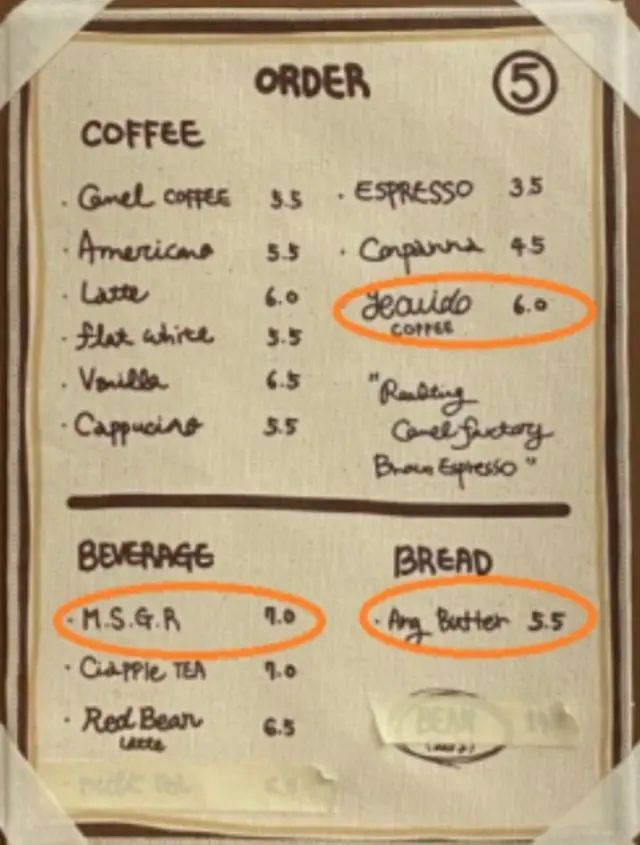 ORDER
⑤
COFFEE
· Camel COFFEE 5.5
· Americano 5.5
· Latte 6.0
· flat white 5.5
· Vanilla 6.5
· Cappucino 5.5
· ESPRESSO 3.5
· Conpanna 4.5
Yeouido 6.0
COFFEE
"Roasting
Camel factory
Brown Espresso"
BEVERAGE
· M.S.G.R 7.0
· Ciapple TEA 7.0
· Red Bean 6.5
Latte
BREAD
· Ang Butter 5.5
BEAN